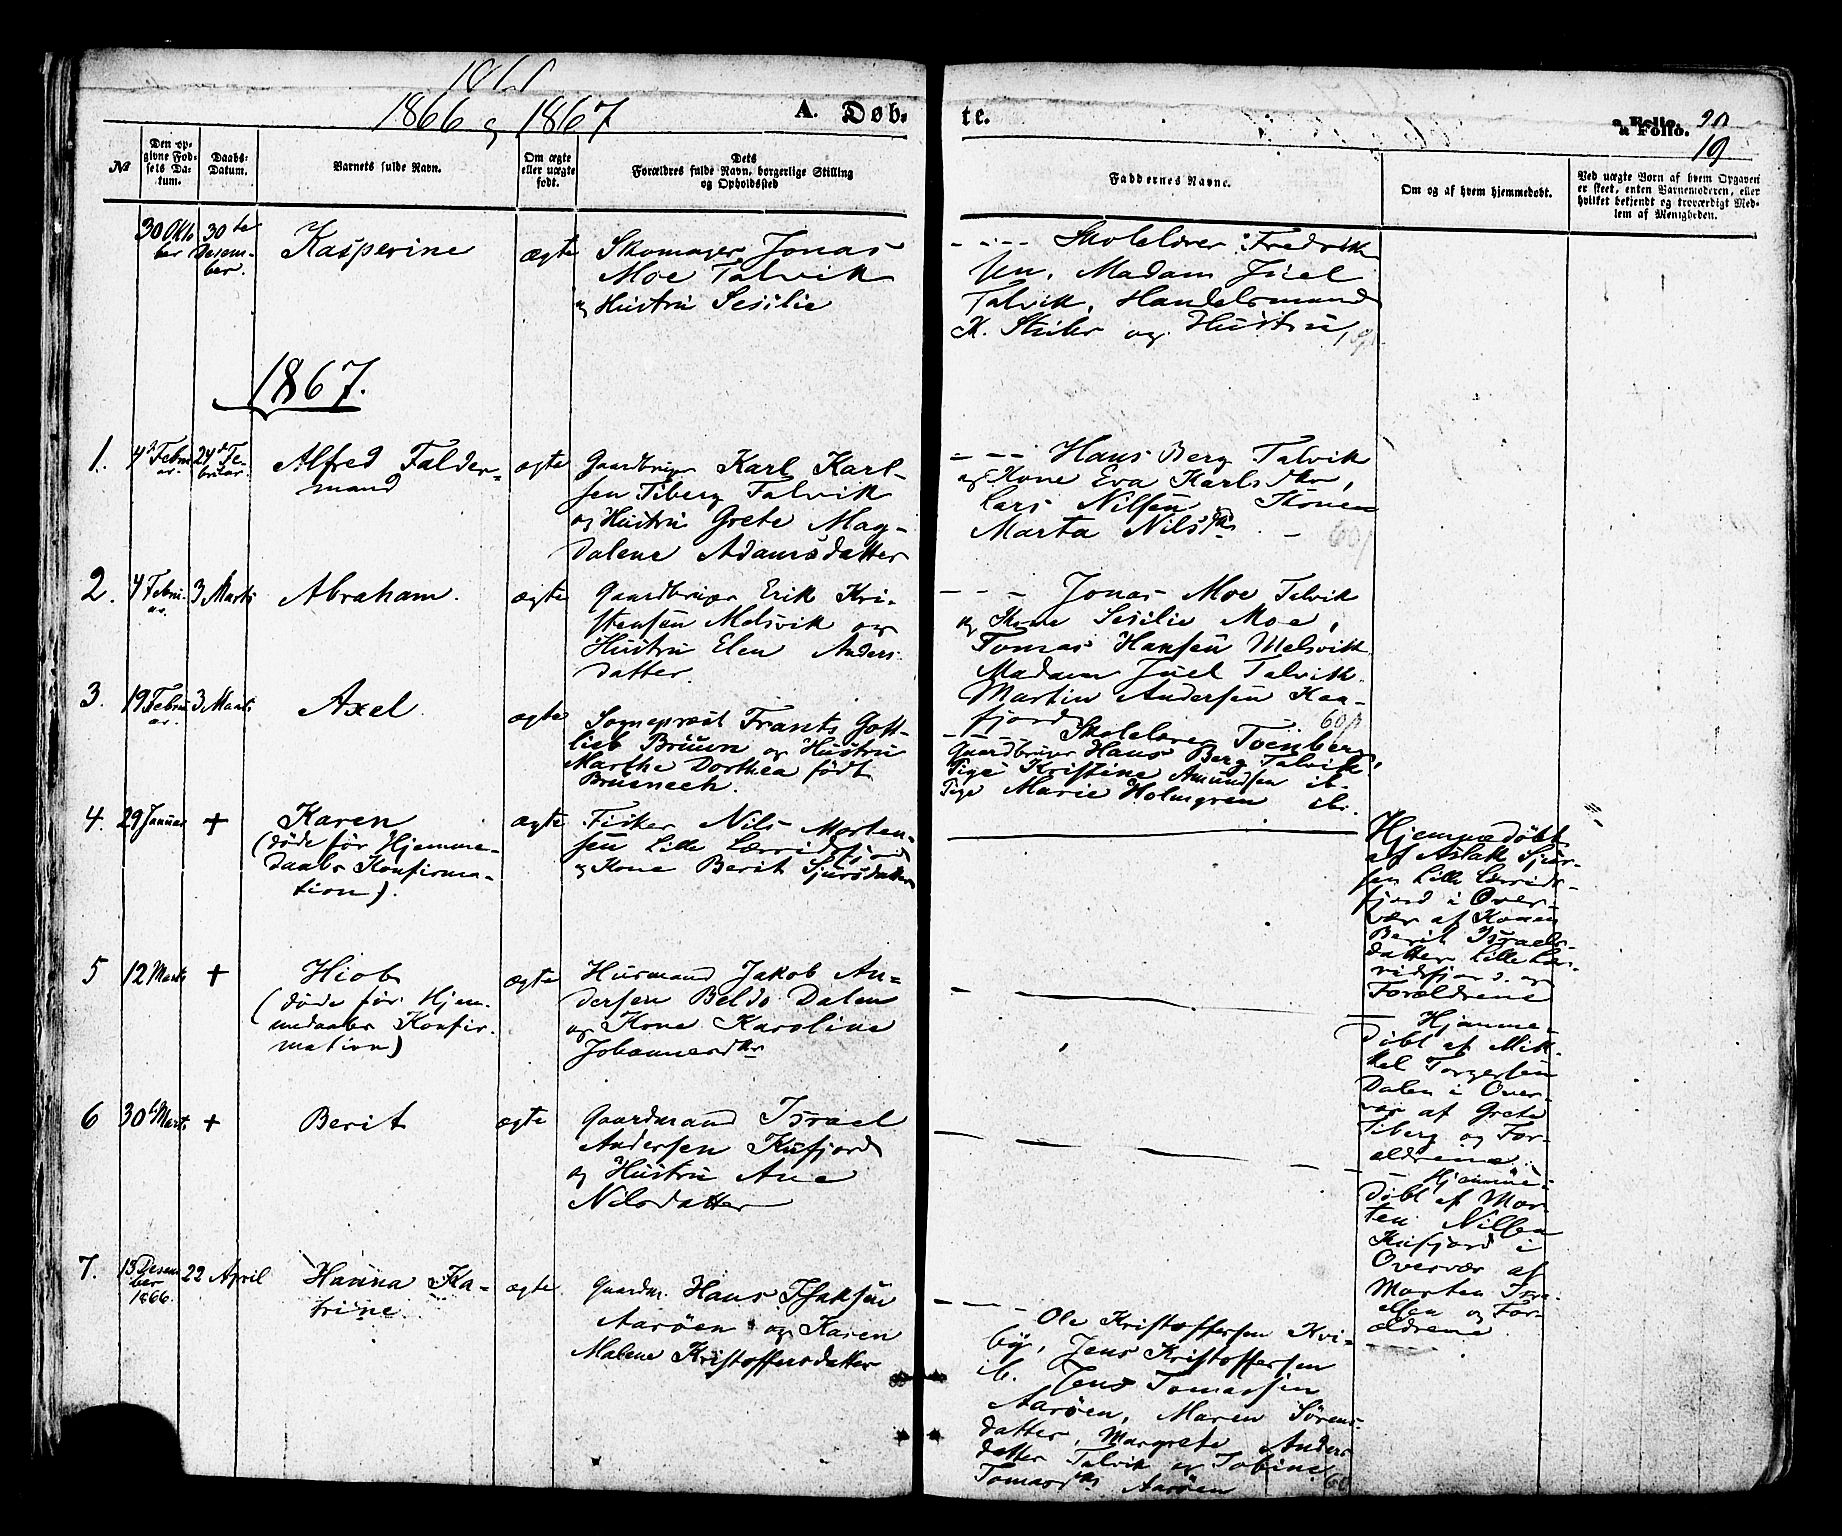 1866 og 1867
A. Døb-
te.
a Folio. 20
a Folio.
19
№
Den op-
givne Fød-
sels Da-
tum.
Daabs-
Datum.
Barnets fulde Navn.
Om ægte
eller uægte
født.
Dets
Forældres fulde Navn, borgerlige Stilling
og Opholdssted
Faddernes Navne.
Om og af hvem hjemmedøbt.
Ved uægte Born af hvem Opgaven
er skeet, enten Barnemoderen, eller
hvilket bekjendt og troværdigt Med-
lem af Menigheden.
30 Okto
ber
30te
Desem-
ber.
Kasperine
ægte
Skomager Jonas
Moe Talvik
og Hustru Sesilie
Skolelærer Fredrik
sen, Madam Juel
Talvik, Handelsmand
K. og Hustru,
1867.
1.
4d Febru
ar.
24d Fe-
bruar.
Alfred Falder-
mand
ægte
Gaardbruger Karl Karl-
sen Tiberg Talvik
og Hustru Grete Mag-
dalene Adamsdatter
Hans Berg Talvik
og Kone Eva Karlsdtr,
Lars Nilsen Konen
Marta Nilsdtr
60/
2.
4 Febru-
ar.
3 Marts
Abraham.
ægte
Gaardbruger Erik Kri-
stensen Melsvik og
Hustru Elen Anders
datter.
Jonas Moe Talvik
og Kone Sesilie Moe,
Tomas Hansen Melsvik
Madam Juel Talvik.
Martin Andersen Kaa-
fjord
60/
3.
19 Febru
ar.
3 Marts
Axel
ægte
Sogneprest Frants Gott-
lieb Bruun og Hustru
Marthe Dorthea født
Skolelærer Toenberg,
Gaardbruger Hans Berg Talvik,
Pige Kristine Amundsen ib.
Pige Marie Holmgren ib.
4.
29 Januar
+
Karen
(døde før Hjemme-
daabs Konfirma-
tion).
ægte
Fisker Nils Morten-
sen Lille Lerrisfjord
og Kone Berit Sjursdatter
Hjemmedøbt
af Aslak Sjur-
sen Lille Lerrids-
fjord i Over-
vær af Konen
Berit Israels-
datter Lille Ler-
ridsfjord og
Forældrene
5
12 Marts
+
Hiob
(døde før Hjem-
medaabs Konfir-
mation)
ægte
Husmand Jakob An-
dersen Beldo Dalen
og Kone Karoline
Johannesdtr
Hjemme-
døbt af Mik-
kel Torgersen
Dalen i Over-
vær af Grete
Tiberg og For-
ældrene.
6
30d Marts
+
Berit
ægte
Gaardmand Israel
Andersen Kufjord
og Hustru Ane
Nilsdatter
Hjemme-
døbt af Mor-
ten Nilsen
Kufjord i
Overvær af
Morten Isra-
elsen og For-
ældrene.
7.
13 Desem
ber
1866.
22 April
Hanna Ka-
trine
ægte.
Gaardm. Hans Isaksen
Aarøen og Karen
Malene Kristoffersdatter
Ole Kristoffersen Kvi-
by, Jens Kristoffersen
ib. Jens Tomassen
Aarøen, Maren Sørens-
datter, Margrete Anders
datter Talvik og Tobine
Tomasdtr Aarøen
60